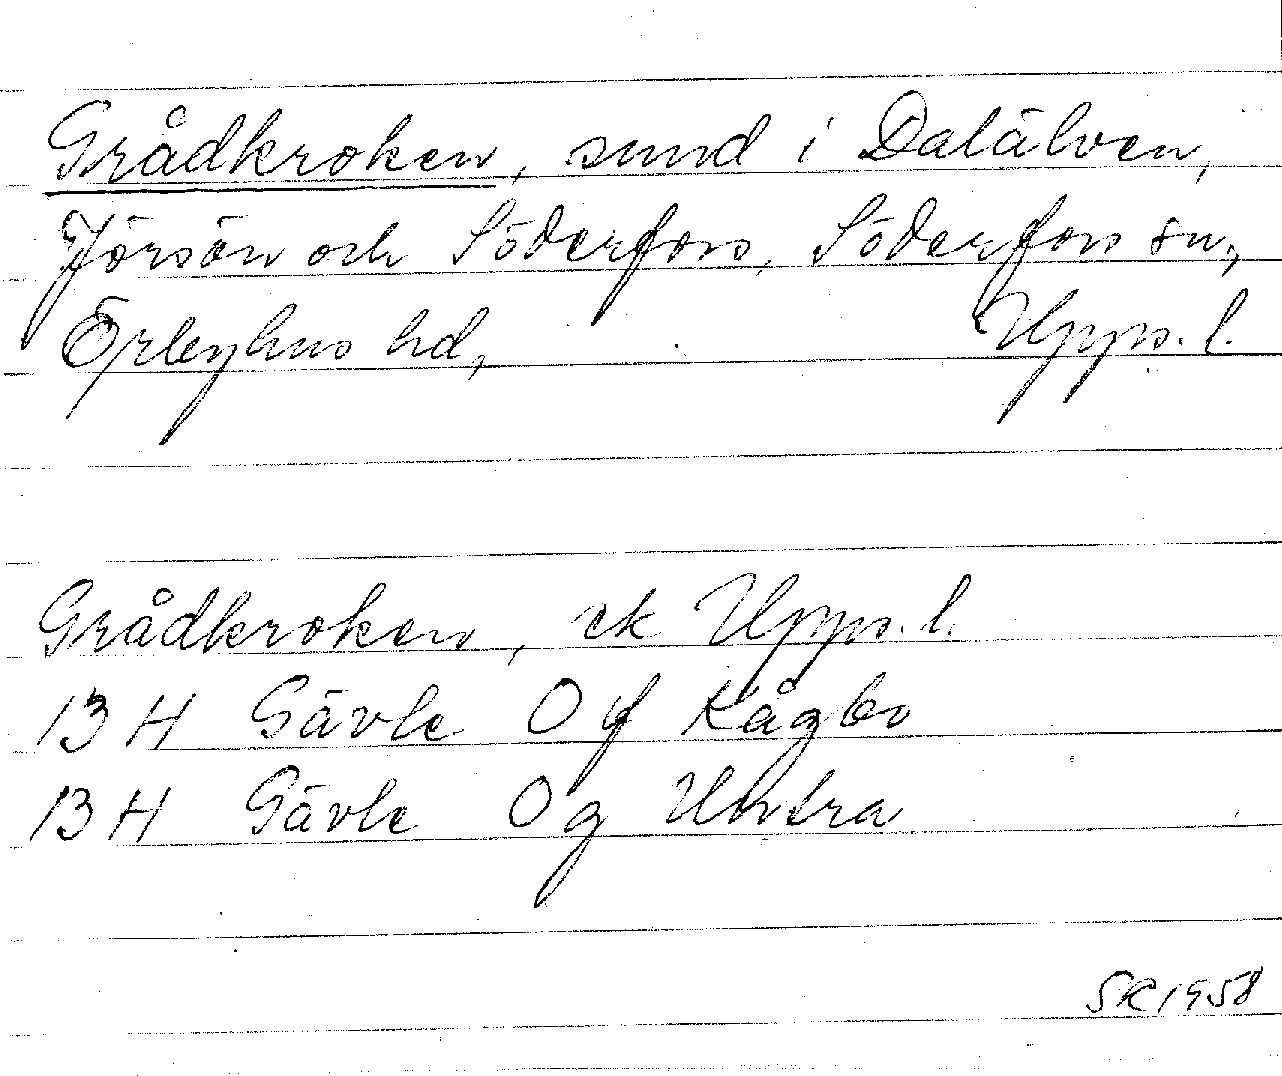 Grådkroken, sund i Dalälven,
Jörsön och Söderfors, Söderfors sn,
Örbyhus hd, Upps. l.
Grådkroken, ek Upps. l.
13 H Gävle O f Kågbo
13 H Gävle O g Untra
SK 1958